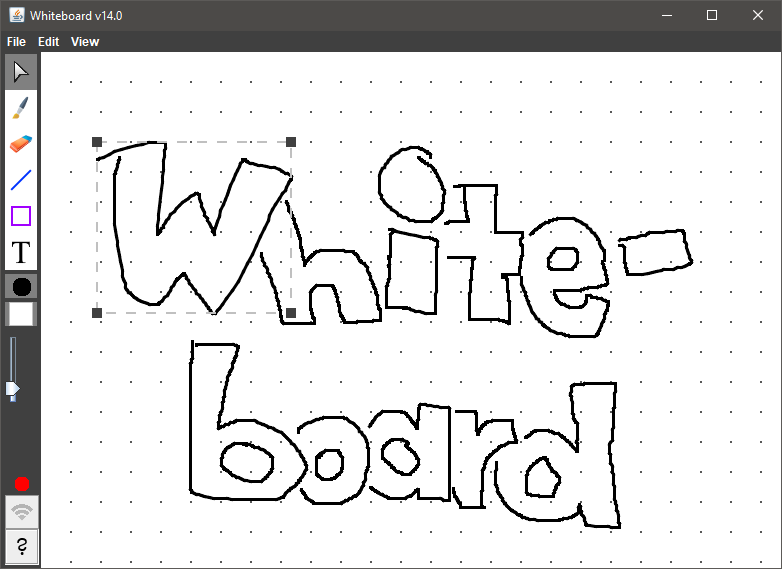 Whiteboard v14.0
File Edit View
White-
board
T
?